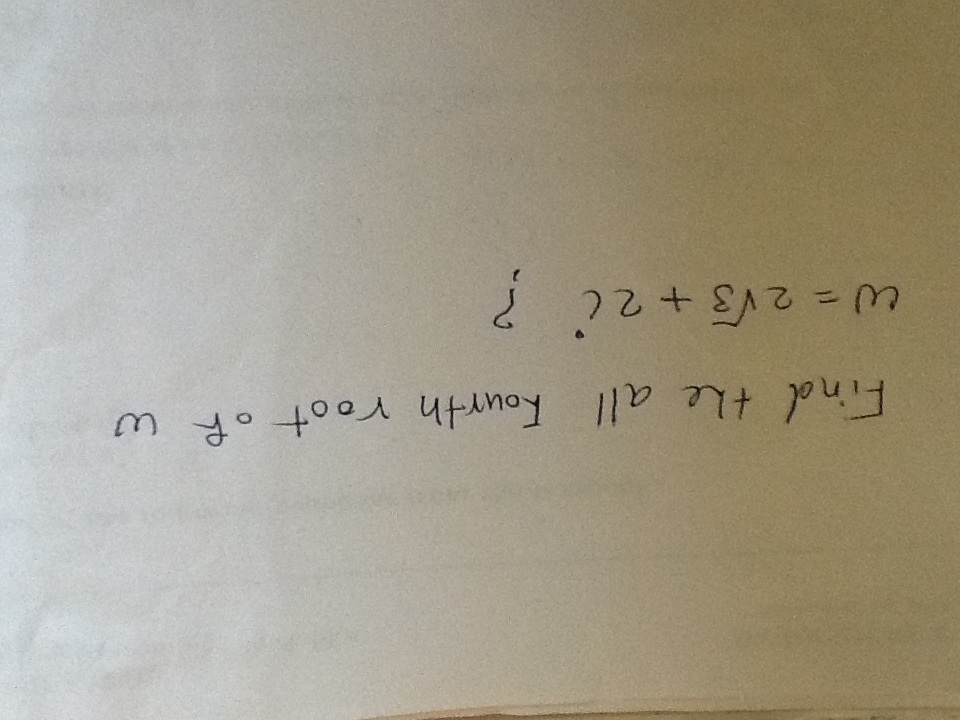 Find the all fourth root of w
w = 2√3 + 2i ?